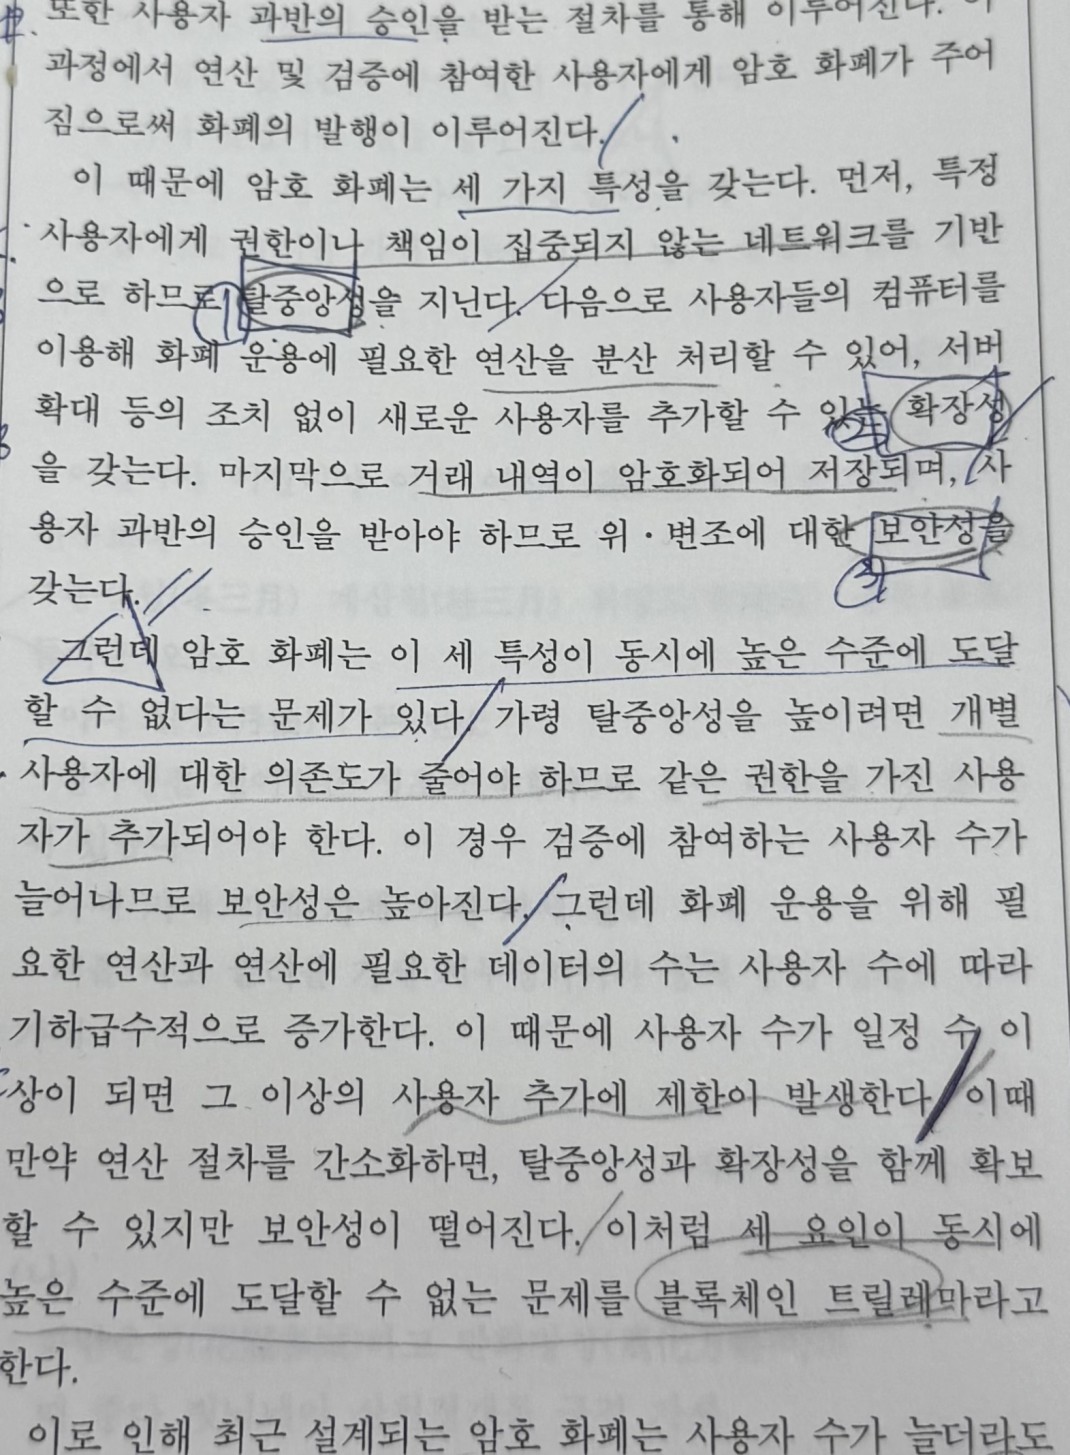 또한 사용자 과반의 승인을 받는 절차를 통해 이루어진다. 이
과정에서 연산 및 검증에 참여한 사용자에게 암호 화폐가 주어
짐으로써 화폐의 발행이 이루어진다.
이 때문에 암호 화폐는 세 가지 특성을 갖는다. 먼저, 특정
사용자에게 권한이나 책임이 집중되지 않는 네트워크를 기반
으로 하므로 ① 탈중앙성을 지닌다. 다음으로 사용자들의 컴퓨터를
이용해 화폐 운용에 필요한 연산을 분산 처리할 수 있어, 서버
확대 등의 조치 없이 새로운 사용자를 추가할 수 있는 ② 확장성
을 갖는다. 마지막으로 거래 내역이 암호화되어 저장되며, 사
용자 과반의 승인을 받아야 하므로 위·변조에 대한 보안성을
③
갖는다.
그런데 암호 화폐는 이 세 특성이 동시에 높은 수준에 도달
할 수 없다는 문제가 있다. 가령 탈중앙성을 높이려면 개별
사용자에 대한 의존도가 줄어야 하므로 같은 권한을 가진 사용
자가 추가되어야 한다. 이 경우 검증에 참여하는 사용자 수가
늘어나므로 보안성은 높아진다. 그런데 화폐 운용을 위해 필
요한 연산과 연산에 필요한 데이터의 수는 사용자 수에 따라
기하급수적으로 증가한다. 이 때문에 사용자 수가 일정 수 이
상이 되면 그 이상의 사용자 추가에 제한이 발생한다. 이때
만약 연산 절차를 간소화하면, 탈중앙성과 확장성을 함께 확보
할 수 있지만 보안성이 떨어진다. 이처럼 세 요인이 동시에
높은 수준에 도달할 수 없는 문제를 블록체인 트릴레마라고
한다.
이로 인해 최근 설계되는 암호 화폐는 사용자 수가 늘더라도